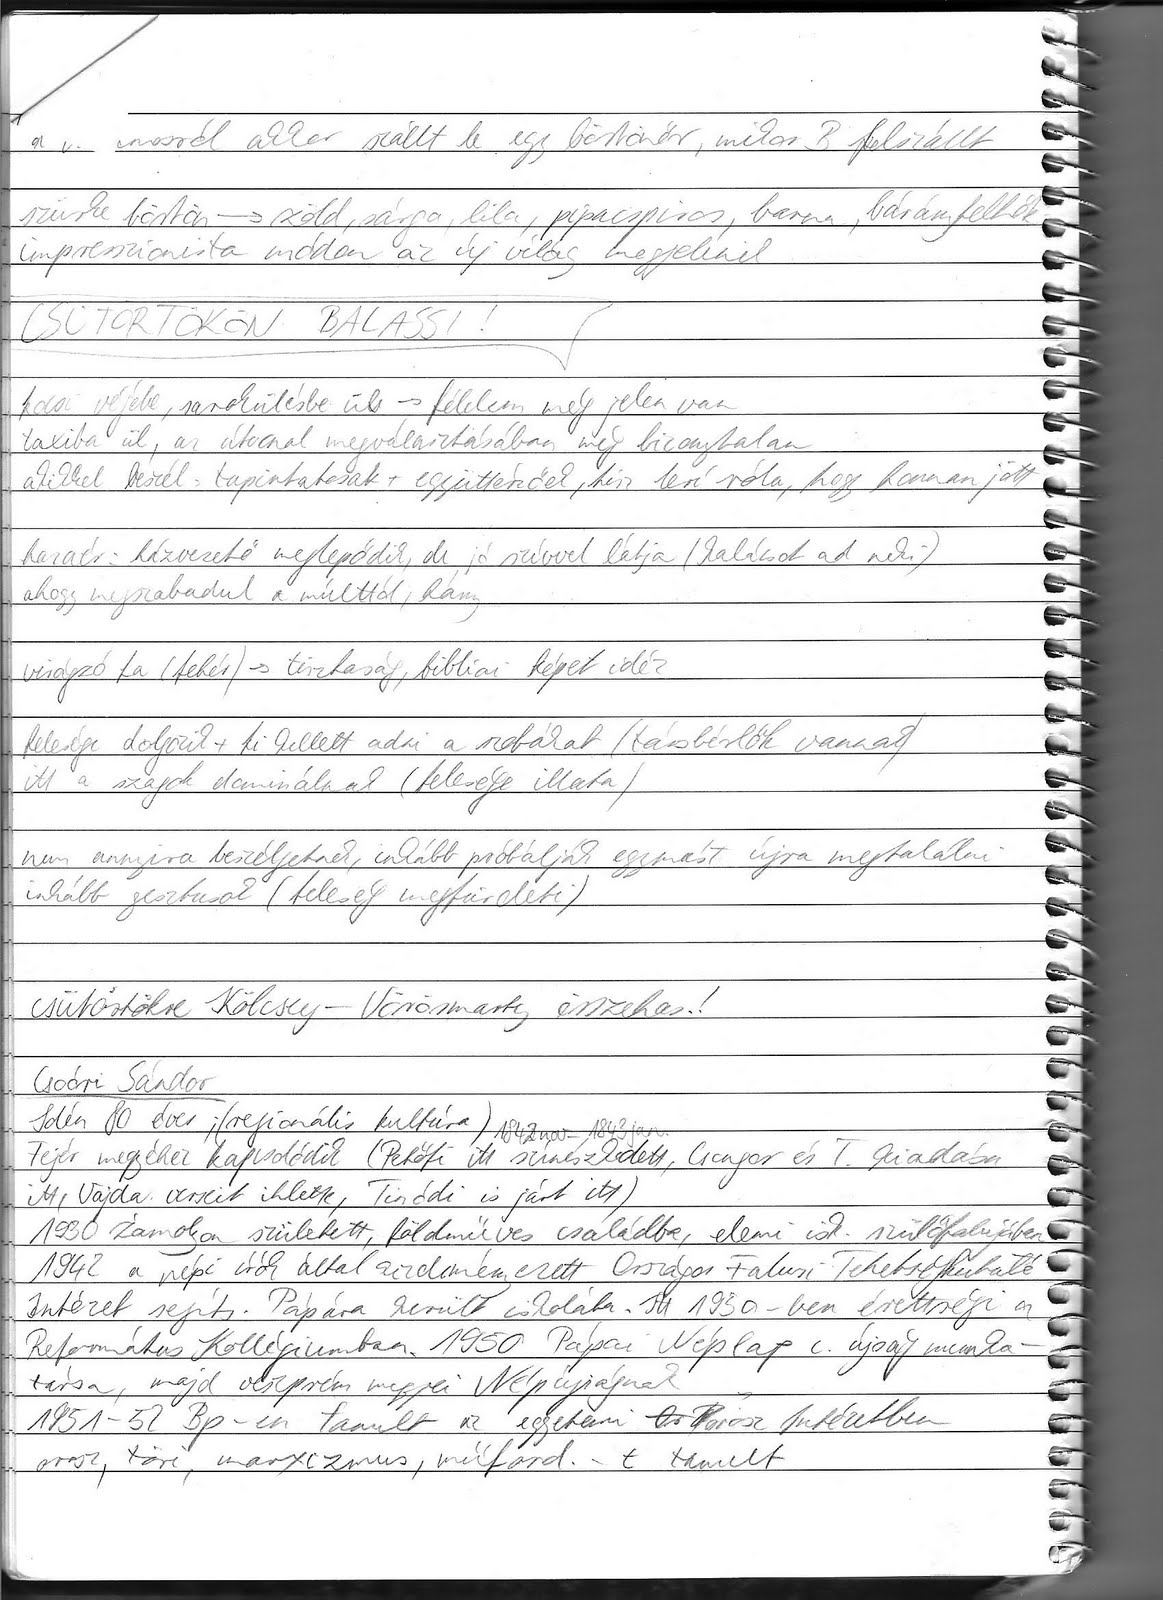 a v. mosról akkor szállt le egy börtönőr, mikor B felszállt
szürke börtön → zöld, sárga, lila, pipacspiros, barna, bárányfelhők
impresszionista módon az új világ megjelenik
CSÜTÖRTÖKÖN BALASSI!
kocsi végébe, sarokülésbe ül → félelem még jelen van
taxiba ül, az útvonal megválasztásában még bizonytalan
akikkel beszél: tapintatosak + együttérzőek, hisz lerí róla, hogy honnan jött
hazaér: házvezető meglepődik, de jó szívvel látja (kalácsot ad neki)
ahogy megszabadul a múlttól, hány
virágzó fa (fehér) → tisztaság, bibliai képet idéz
felesége dolgozik + ki kellett adni a szobákat (társbérlők vannak)
itt a szagok dominálnak (felesége illata)
nem annyira beszélgetnek, inkább próbálják egymást újra megtalálni
inkább gesztusok (feleség megfürdeti)
csütörtökre Kölcsey – Vörösmarty összehas.!
Csoóri Sándor
Idén 80 éves, (regionális kultúra) 1842 nov – 1843 jan.
Fejér megyéhez kapcsolódik (Petőfi itt színészkedett, Csongor és T. kiadása
itt, Vajda verseit ihlette, Tinódi is járt itt)
1930 Zámolyon született, földműves családba, elemi isk. szülőfalujában
1942 a népi írók által kezdeményezett Országos Falusi Tehetségkutató
Intézet segíts. Pápára került iskolába. Itt 1950-ben érettségi a
Református Kollégiumban. 1950 Pápai Néplap c. újság munka-
társa, majd veszprém megyei Népújságnak
1951-52 Bp-en tanult az egyetemi Orosz Intézetben
orosz, töri, marxizmus, műford. - t tanult